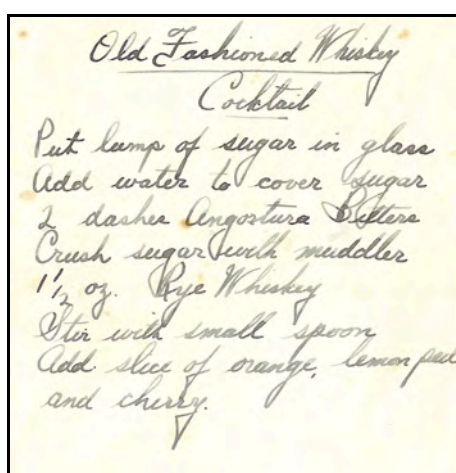 Old Fashioned Whiskey
Cocktail
Put lump of sugar in glass
Add water to cover sugar
2 dashes Angostura Bitters
Crush sugar with muddler
1 1/2 oz. Rye Whiskey
Stir with small spoon
Add slice of orange, lemon peel
and cherry.